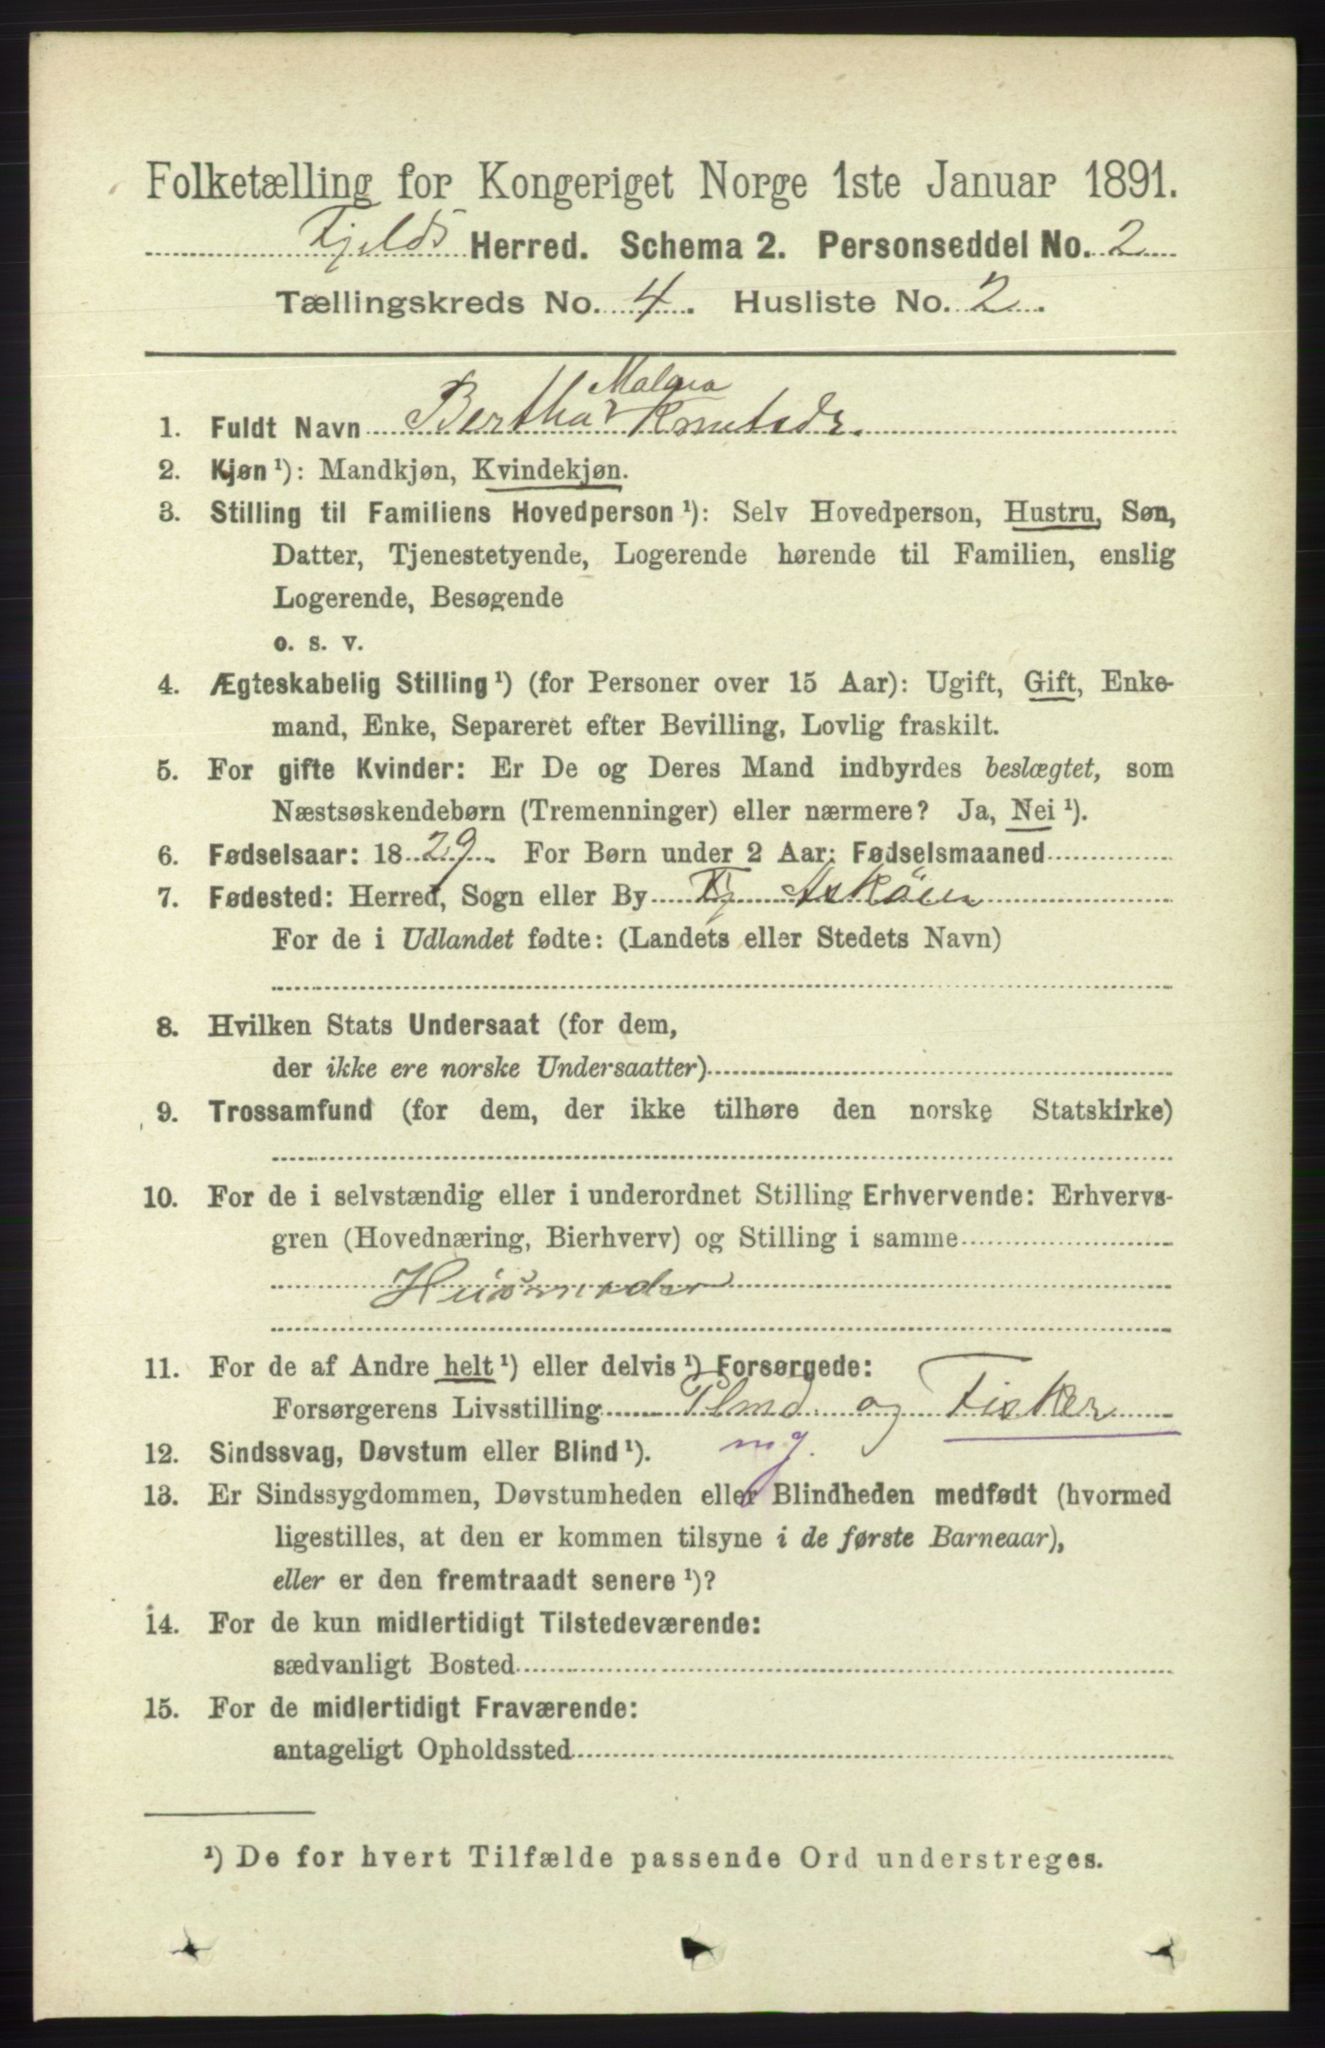 Folketælling for Kongeriget Norge 1ste Januar 1891.
Fjelds Herred. Schema 2. Personseddel No. 2
Tællingskreds No. 4. Husliste No. 2.
Malena
1. Fuldt Navn Bertha Knutsdr.
2. Kjøn ¹): Mandkjøn, Kvindekjøn.
3. Stilling til Familiens Hovedperson ¹): Selv Hovedperson, Hustru, Søn,
Datter, Tjenestetyende, Logerende hørende til Familien, enslig
Logerende, Besøgende
o. s. v.
4. Ægteskabelig Stilling ¹) (for Personer over 15 Aar): Ugift, Gift, Enke-
mand, Enke, Separeret efter Bevilling, Lovlig fraskilt.
5. For gifte Kvinder: Er De og Deres Mand indbyrdes beslægtet, som
Næstsøskendebørn (Tremenninger) eller nærmere? Ja, Nei ¹).
6. Fødselsaar: 1829. For Børn under 2 Aar: Fødselsmaaned
7. Fødested: Herred, Sogn eller By Askøen
For de i Udlandet fødte: (Landets eller Stedets Navn)
8. Hvilken Stats Undersaat (for dem,
der ikke ere norske Undersaatter)
9. Trossamfund (for dem, der ikke tilhøre den norske Statskirke)
10. For de i selvstændig eller i underordnet Stilling Erhvervende: Erhvervs-
gren (Hovednæring, Bierhverv) og Stilling i samme
Husmoder
11. For de af Andre helt ¹) eller delvis ¹) Forsørgede:
Forsørgerens Livsstilling og Fisker
12. Sindssvag, Døvstum eller Blind ¹).
13. Er Sindssygdommen, Døvstumheden eller Blindheden medfødt (hvormed
ligestilles, at den er kommen tilsyne i de første Barneaar),
eller er den fremtraadt senere ¹)?
14. For de kun midlertidigt Tilstedeværende:
sædvanligt Bosted
15. For de midlertidigt Fraværende:
antageligt Opholdssted
¹) De for hvert Tilfælde passende Ord understreges.